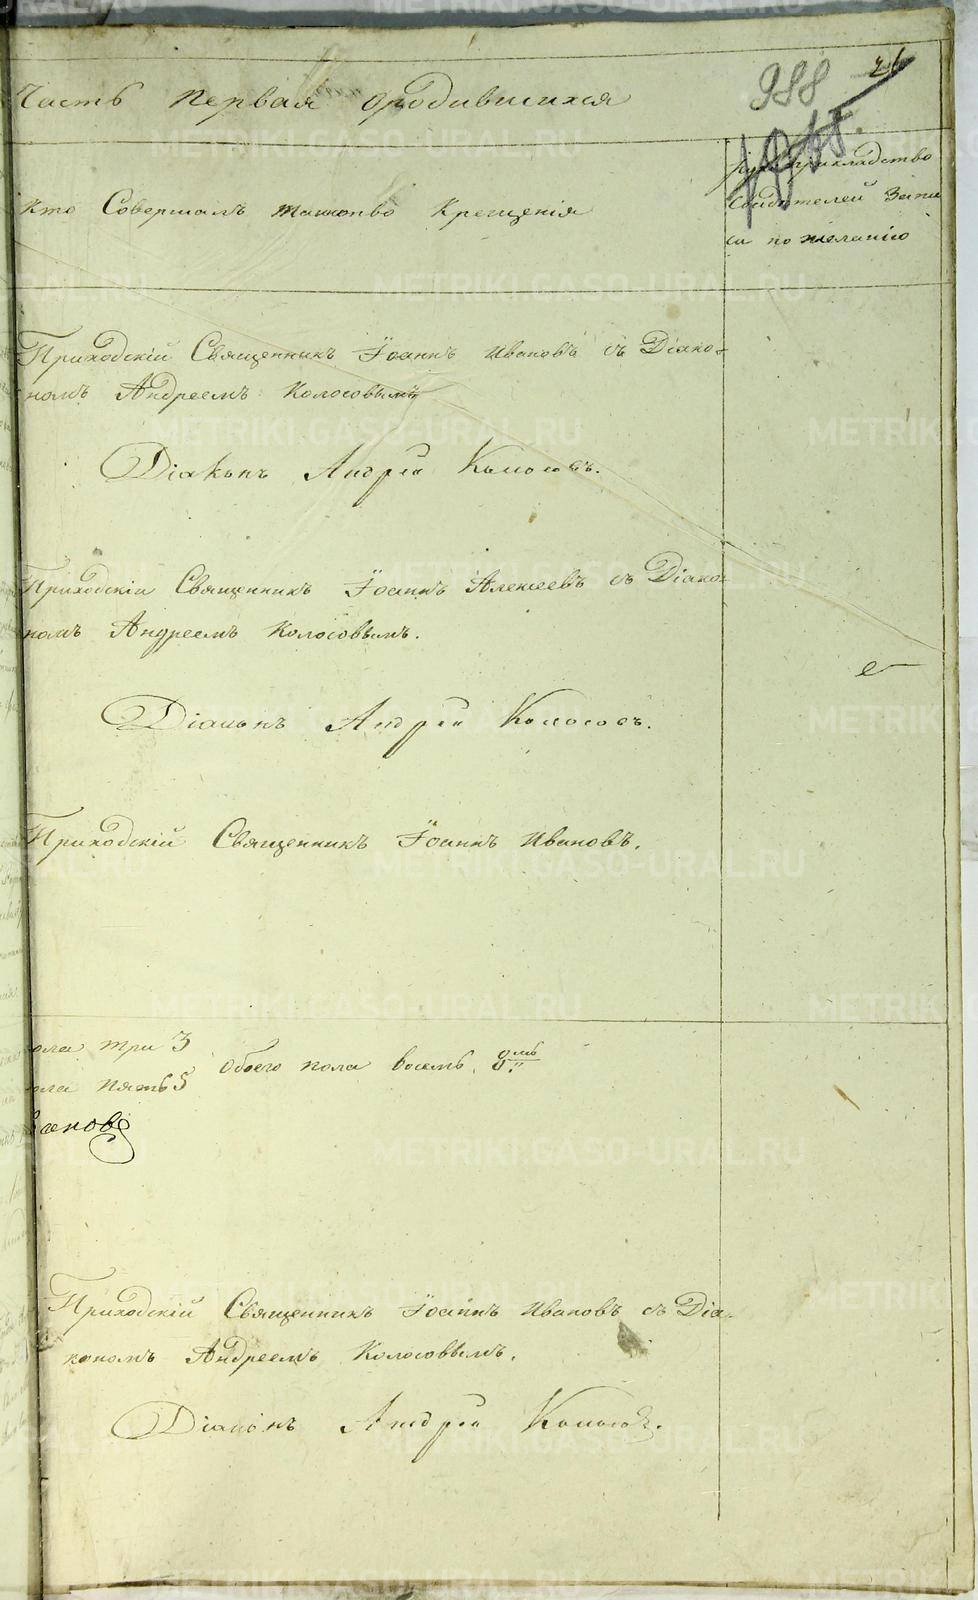 Часть первая о родившихся
988
26
Кто Совершалъ таинство Крещенія
Рукоприкладство
Свидѣтелей Запи
си по желанію
Приходскій Священникъ Іоаннъ Ивановъ съ Діако-
номъ Андреемъ Колосовымъ
Діаконъ Андрей Колосовъ.
Приходскій Священникъ Іоаннъ Алексеевъ съ Діако-
номъ Андреемъ Колосовымъ.
Діаконъ Андрей Колосовъ.
Приходскій Священникъ Іоаннъ Ивановъ.
ола три 3
Обоего пола восемь. 8мь
ола пять 5
Приходскій Священникъ Іоаннъ Ивановъ съ Діа-
кономъ Андреемъ Колосовымъ.
Діаконъ Андрей Колосовъ.
METRIKI.GASO-URAL.RU